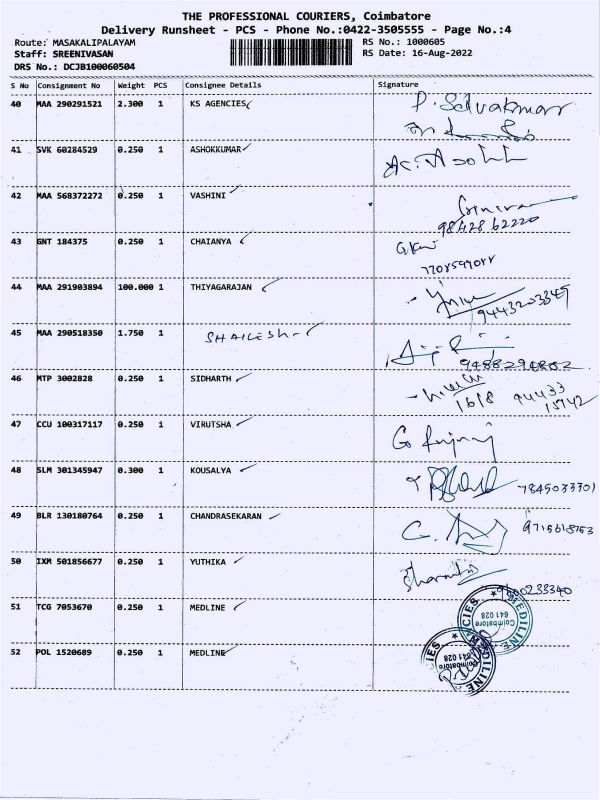 THE PROFESSIONAL COURIERS, Coimbatore
Delivery Runsheet - PCS - Phone No.:0422-3505555 - Page No.:4
Route: MASAKALIPALAYAM
Staff: SREENIVASAN
DRS No.: DCJB100060504
RS No.: 1000605
RS Date: 16-Aug-2022
S No Consignment No Weight PCS Consignee Details Signature
40 MAA 290291521 2.300 1 KS AGENCIES P. Selvakumar
41 SVK 60284529 0.250 1 ASHOKKUMAR
42 MAA 568372272 0.250 1 VASHINI
98428 62220
43 GNT 184375 0.250 1 CHAIANYA
44 MAA 291903894 100.000 1 THIYAGARAJAN
9443203349
45 MAA 290518350 1.750 1 SHAILESH
9488294882
46 MTP 3002828 0.250 1 SIDHARTH
1618 94433
15742
47 CCU 100317117 0.250 1 VIRUTSHA
48 SLM 301345947 0.300 1 KOUSALYA 7845033301
49 BLR 130180764 0.250 1 CHANDRASEKARAN 9715618753
50 IXM 501856677 0.250 1 YUTHIKA 9600233340
51 TCG 7053670 0.250 1 MEDLINE
MEDILINE
Coimbatore
641 028
52 POL 1520689 0.250 1 MEDLINE
Coimbatore
641 028